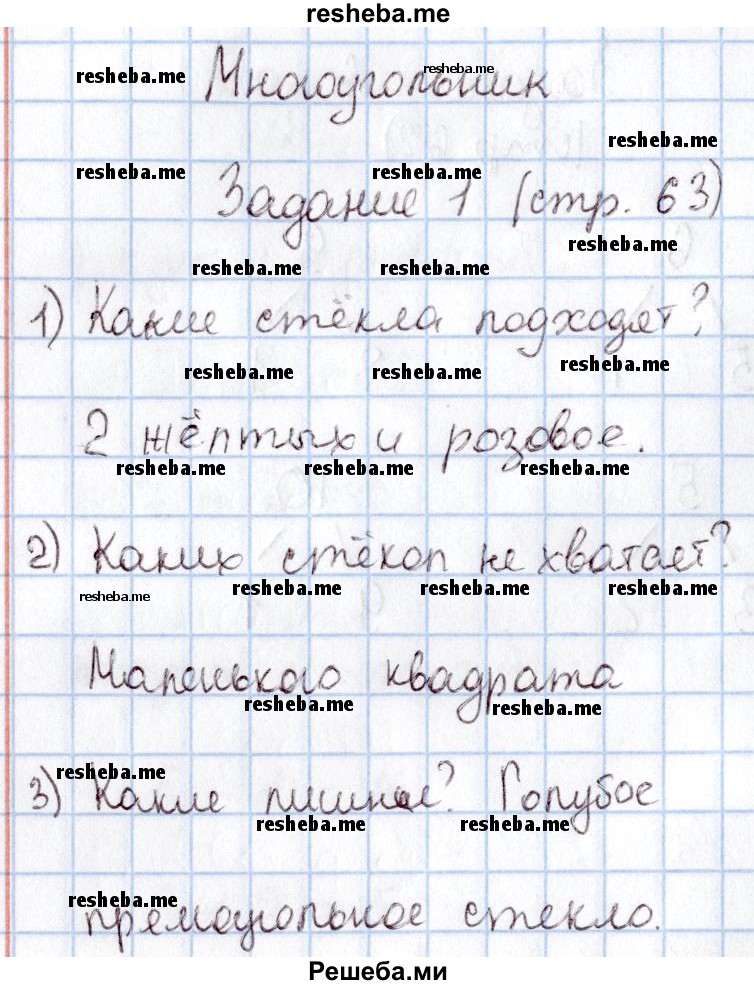 resheba.me
resheba.me resheba.me
Многоугольник
resheba.me
resheba.me resheba.me
Задание 1 (стр. 63)
resheba.me
resheba.me resheba.me
1) Какие стёкла подходят?
resheba.me resheba.me resheba.me
2 жёлтых и розовое.
resheba.me resheba.me resheba.me
2) Каких стёкол не хватает?
resheba.me resheba.me resheba.me resheba.me
Маленького квадрата
resheba.me resheba.me
resheba.me
3) Какие лишние? Голубое
resheba.me resheba.me
resheba.me
прямоугольное стекло.
Решеба.ми